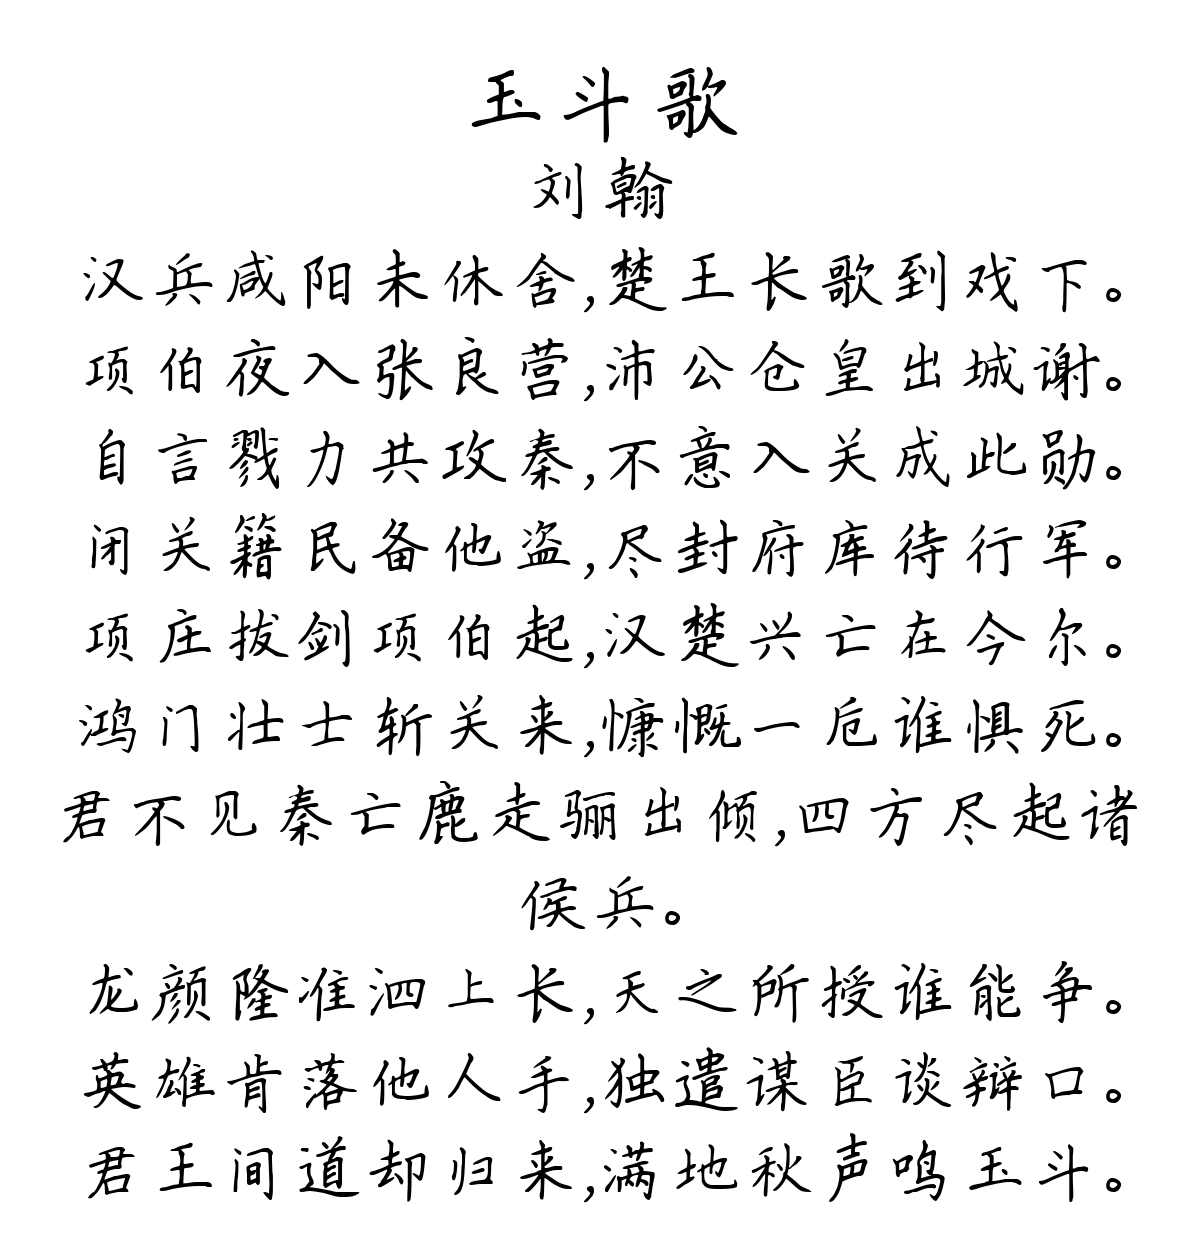 玉斗歌
刘翰
汉兵咸阳未休舍,楚王长歌到戏下。
项伯夜入张良营,沛公仓皇出城谢。
自言戮力共攻秦,不意入关成此勋。
闭关籍民备他盗,尽封府库待行军。
项庄拔剑项伯起,汉楚兴亡在今尔。
鸿门壮士斩关来,慷慨一卮谁惧死。
君不见秦亡鹿走骊出倾,四方尽起诸
侯兵。
龙颜隆准泗上长,天之所授谁能争。
英雄肯落他人手,独遣谋臣谈辩口。
君王间道却归来,满地秋声鸣玉斗。